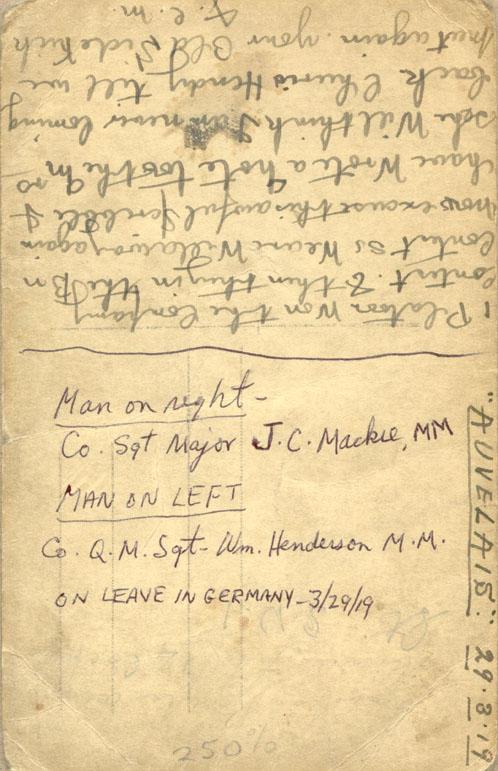 1 Platoon Won the Company
Contest. & then they in the Bn
Contest so We are Willie won again
now excuse this awful scribble I
have Wrote a note too the
she Will think I am never Coming
back Cheerio Hendy till we
meet again. your Old Side Kick
J. C. M.
Man on right -
Co. Sgt Major J.C. Mackie, MM
MAN ON LEFT
Co. Q.M. Sgt - Wm. Henderson M.M.
ON LEAVE IN GERMANY - 3/29/19
"AUVELAIS." 29.3.19
250%